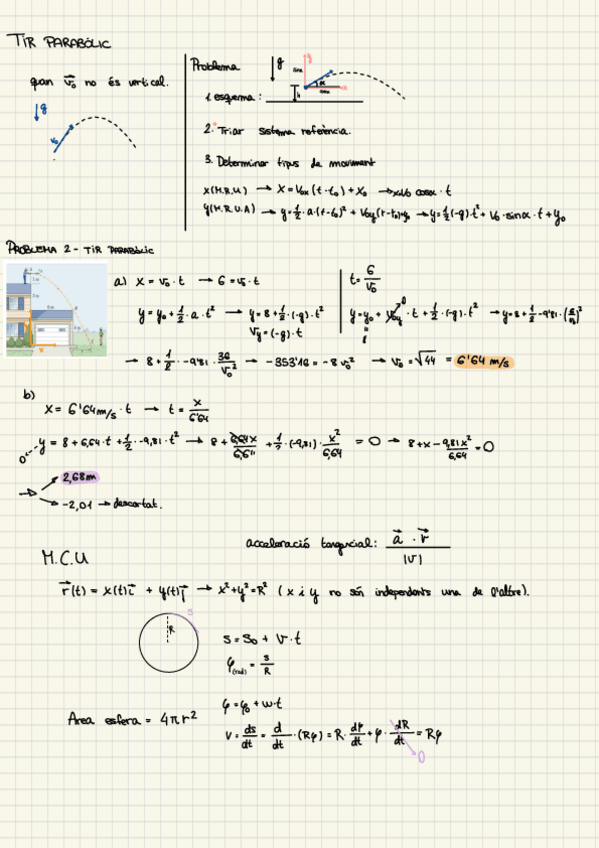 TIR PARABÒLIC
quan v₀ no és vertical.
g
v₀
Problema
g
1 esquema:
2. Triar sistema referència.
3. Determinar tipus de moviment
x(M.R.U) → x = v₀ₓ (t-t₀) + x₀ → x=v₀ cosα · t
y(M.R.U.A) → y = 1/2 · a · (t-t₀)² + v₀y(t-t₀)+y₀ → y = 1/2 (-g) · t² + v₀ · sinα · t + y₀
PROBLEMA 2 - TIR PARABÒLIC
a) x = v₀ · t → 6 = v₀ · t
y = y₀ + 1/2 · a · t² → y = 8 + 1/2 · (-g) · t²
Vy = (-g) · t
t = 6/v₀
y = y₀ + v₀y · t + 1/2 · (-g) · t² → y = 8 + 1/2 · -9'81 · (6/v₀)²
→ 8 + 1/2 · -9'81 · 36/v₀² → -353'16 = -8 v₀² → v₀ = √44 = 6'64 m/s
b)
x = 6'64 m/s · t → t = x/6'64
0 y = 8 + 6,64 · t + 1/2 · -9,81 · t² → 8 + 6,64x/6,64 + 1/2 · (-9,81) · x²/6,64 = 0 → 8 + x - 9,81x²/6,64 = 0
2,68m
-2,01 → descartat.
acceleració tangencial: a · v / |v|
M.C.U
r(t) = x(t)i + y(t)j → x² + y² = R² (x i y no són independents una de l'altre).
s
R
s = s₀ + v · t
φ(rad) = s/R
Àrea esfera = 4πr²
φ = φ₀ + ω · t
v = ds/dt = d/dt · (Rφ) = R · dφ/dt + φ · dR/dt = Rφ
0